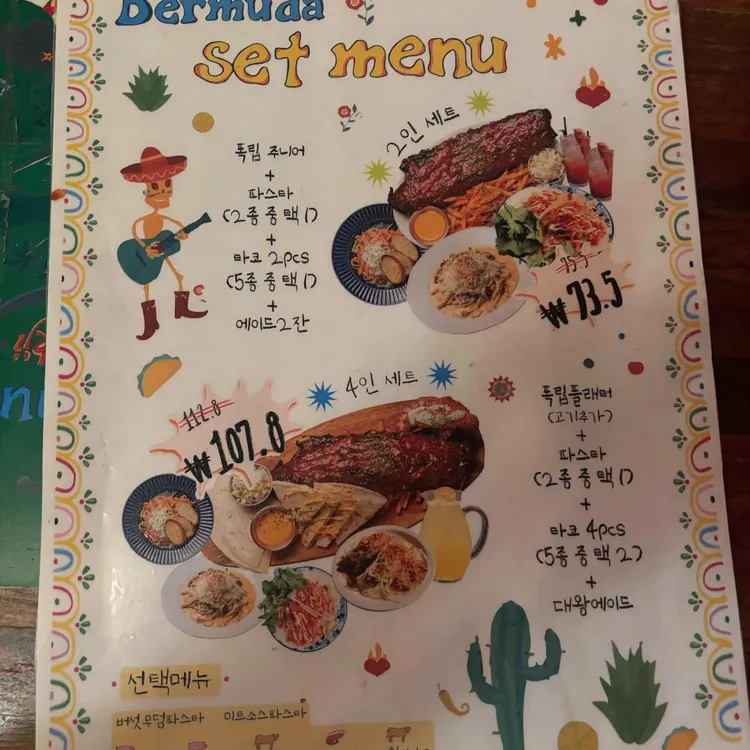 Bermuda
set menu
2인 세트
폭립 주니어
+
파스타
(2종 중 택 1)
+
타코 2pcs
(5종 중 택 1)
+
에이드 2잔
₩73.5
4인 세트
112.8
₩107.8
폭립플래터
(고기추가)
+
파스타
(2종 중 택 1)
+
타코 4pcs
(5종 중 택 2)
+
대왕에이드
선택메뉴
버섯무덤파스타 미트소스파스타